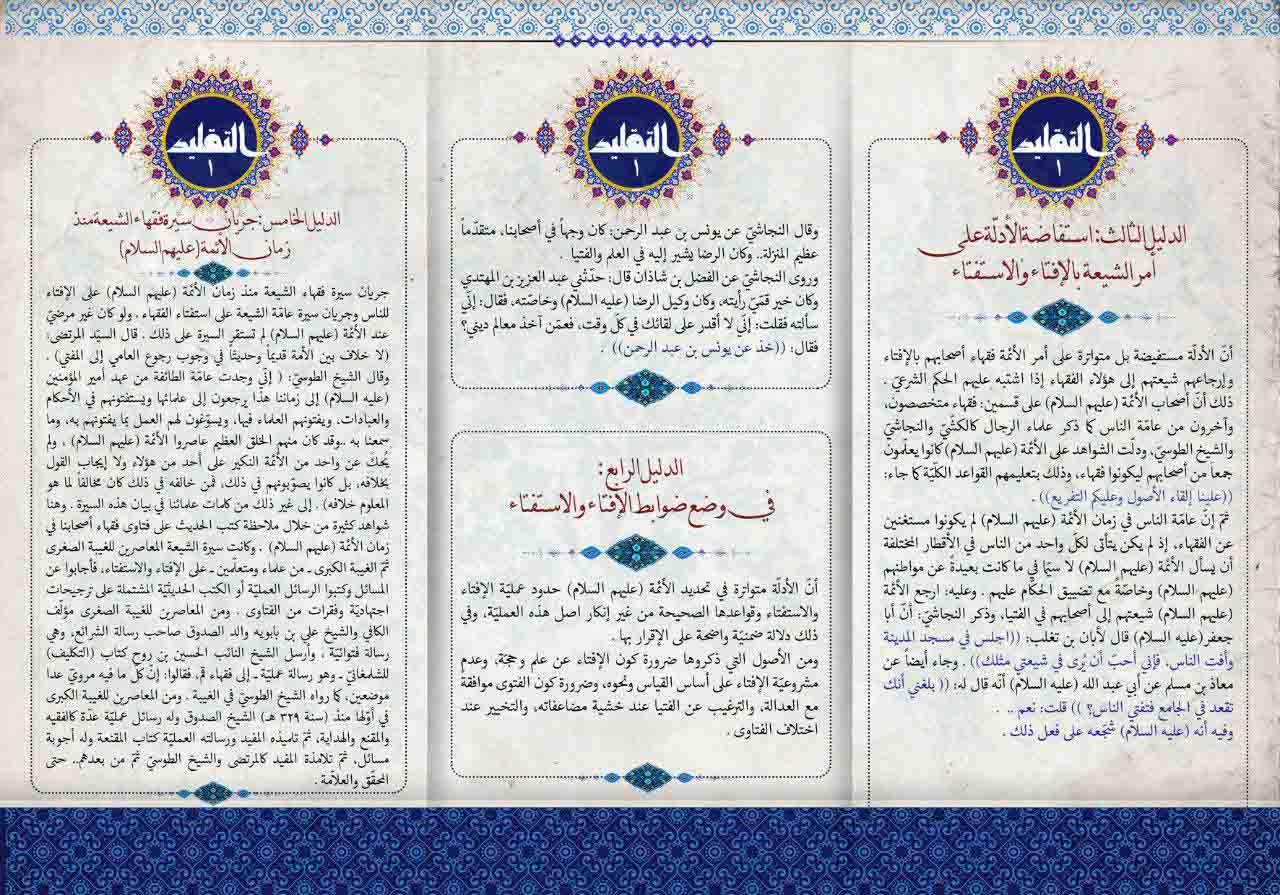 التقليد
١
الدليل الثالث: استفاضة الأدلّة على
أمر الشيعة بالإفتاء والاستفتاء
أنّ الأدلّة مستفيضة بل متواترة على أمر الأئمة فقهاء أصحابهم بالإفتاء
وإرجاعهم شيعتهم إلى هؤلاء الفقهاء إذا اشتبه عليهم الحكم الشرعيّ .
ذلك أنّ أصحاب الأئمة (عليهم السلام) على قسمين: فقهاء متخصصون،
وآخرون من عامّة الناس كما ذكر علماء الرجال كالكشّي والنجاشي
والشيخ الطوسيّ، ودلّت الشواهد على الأئمة (عليهم السلام) كانوا يعلّمونَ
جمعاً من أصحابهم ليكونوا فقهاء، وذلك بتعليمهم القواعد الكلّية كما جاء:
((علينا إلقاء الأصول وعليكم التفريع)) .
ثمّ إنّ عامّة الناس في زمان الأئمة (عليهم السلام) لم يكونوا مستغنين
عن الفقهاء، إذ لم يكن يتأتى لكلّ واحد من الناس في الأقطار المختلفة
أن يسأل الأئمة (عليهم السلام) لا سيّما في ما كانت بعيدةً عن مواطنهم
(عليهم السلام) وخاصّةً مع تضييق الحكّام عليهم . وعليه: ارجع الأئمة
(عليهم السلام) شيعتهم إلى أصحابهم في الفتيا، وذكر النجاشيّ: أنّ أبا
جعفر(عليه السلام) قال لأبان بن تغلب: ((اجلس في مسجد المدينة
وأفت الناس، فإني أحبّ أن يُرى في شيعتي مثلك)) . وجاء أيضاً عن
معاذ بن مسلم عن أبي عبد الله (عليه السلام) أنّه قال له: (( بلغني أنك
تقعد في الجامع فتفتي الناس؟ )) قلت: نعم .. .
وفيه أنه (عليه السلام) شجّعه على فعل ذلك .
التقليد
١
وقال النجاشيّ عن يونس بن عبد الرحمن: كان وجهاً في أصحابنا، متقدّماً
عظيم المنزلة.. وكان الرضا يشير إليه في العلم والفتيا .
وروى النجاشيّ عن الفضل بن شاذان قال: حدّثني عبد العزيز بن المهتدي
وكان خير قمّيّ رأيته، وكان وكيل الرضا (عليه السلام) وخاصّته، فقال: إنّي
سألته فقلت: إنّي لا أقدر على لقائك في كلّ وقت، فعمّن آخذ معالم ديني؟
فقال: ((خذ عن يونس بن عبد الرحمن)) .
الدليل الرابع:
في وضع ضوابط الإفتاء والاستفتاء
أنّ الأدلّة متواترة في تحديد الأئمة (عليهم السلام) حدود عمليّة الإفتاء
والاستفتاء وقواعدها الصحيحة من غير إنكار اصل هذه العمليّة، وفي
ذلك دلالة ضمنيّة واضحة على الإقرار بها .
ومن الأصول التي ذكروها ضرورة كون الإفتاء عن علم وحجّة، وعدم
مشروعيّة الإفتاء على أساس القياس ونحوه، وضرورة كون الفتوى موافقة
مع العدالة، والترغيب عن الفتيا عند خشية مضاعفاته، والتخيير عند
اختلاف الفتاوى .
التقليد
١
الدليل الخامس: جريان سيرة فقهاء الشيعة منذ
زمان الأئمة (عليهم السلام)
جريان سيرة فقهاء الشيعة منذ زمان الأئمة (عليهم السلام) على الإفتاء
للناس وجريان سيرة عامّة الشيعة على استفتاء الفقهاء . ولو كان غير مرضيّ
عند الأئمة (عليهم السلام) لم تستقر السيرة على ذلك . قال السيّد المرتضى:
(لا خلاف بين الأمة قديماً وحديثاً في وجوب رجوع العامي إلى المفتي) .
وقال الشيخ الطوسيّ: ( إنّي وجدت عامّة الطائفة من عهد أمير المؤمنين
(عليه السلام) إلى زماننا هذا يرجعون إلى علمائها ويستفتونهم في الأحكام
والعبادات، ويفتونهم العلماء فيها، ويسوّغون لهم العمل بما يفتونهم به، وما
سمعنا به ..وقد كان منهم الخلق العظيم عاصروا الأئمة (عليهم السلام) . ولم
يُحك عن واحد من الأئمة النكير على أحد من هؤلاء ولا إيجاب القول
بخلافه، بل كانوا يصوّبونهم في ذلك، فمن خالفه في ذلك كان مخالفاً لما هو
المعلوم خلافه) . إلى غير ذلك من كلمات علمائنا في بيان هذه السيرة . وهنا
شواهد كثيرة من خلال ملاحظة كتب الحديث على فتاوى فقهاء أصحابنا في
زمان الأئمة (عليهم السلام) . وكانت سيرة الشيعة المعاصرين للغيبة الصغرى
ثمّ الغيبة الكبرى ـ من علماء ومتعلّمين ـ على الإفتاء والاستفتاء، فأجابوا عن
المسائل وكتبوا الرسائل العمليّة أو الكتب الحديثيّة المشتملة على ترجيحات
اجتهاديّة وفقرات من الفتاوى . ومن المعاصرين للغيبة الصغرى مؤلّف
الكافي والشيخ علي بن بابويه والد الصدوق صاحب رسالة الشرائع، وهي
رسالة فتوائيّة ، وأرسل الشيخ النائب الحسين بن روح كتاب (التكليف)
للشلمغانيّ ـ وهو رسالة عمليّة ـ إلى فقهاء قم، فقالوا: إنّ كلّ ما فيه مرويّ عدا
موضعين، كما رواه الشيخ الطوسيّ في الغيبة . ومن المعاصرين للغيبة الكبرى
في أوّلها منذ (سنة ٣٢٩ هـ) الشيخ الصدوق وله رسائل عمليّة عدة كالفقيه
والمقنع والهداية، ثمّ تلميذه المفيد ورسالته العمليّة كتاب المقنعة وله أجوبة
مسائل، ثمّ تلامذة المفيد كالمرتضى والشيخ الطوسيّ ثمّ من بعدهم.. حتى
المحقّق والعلاّمة .